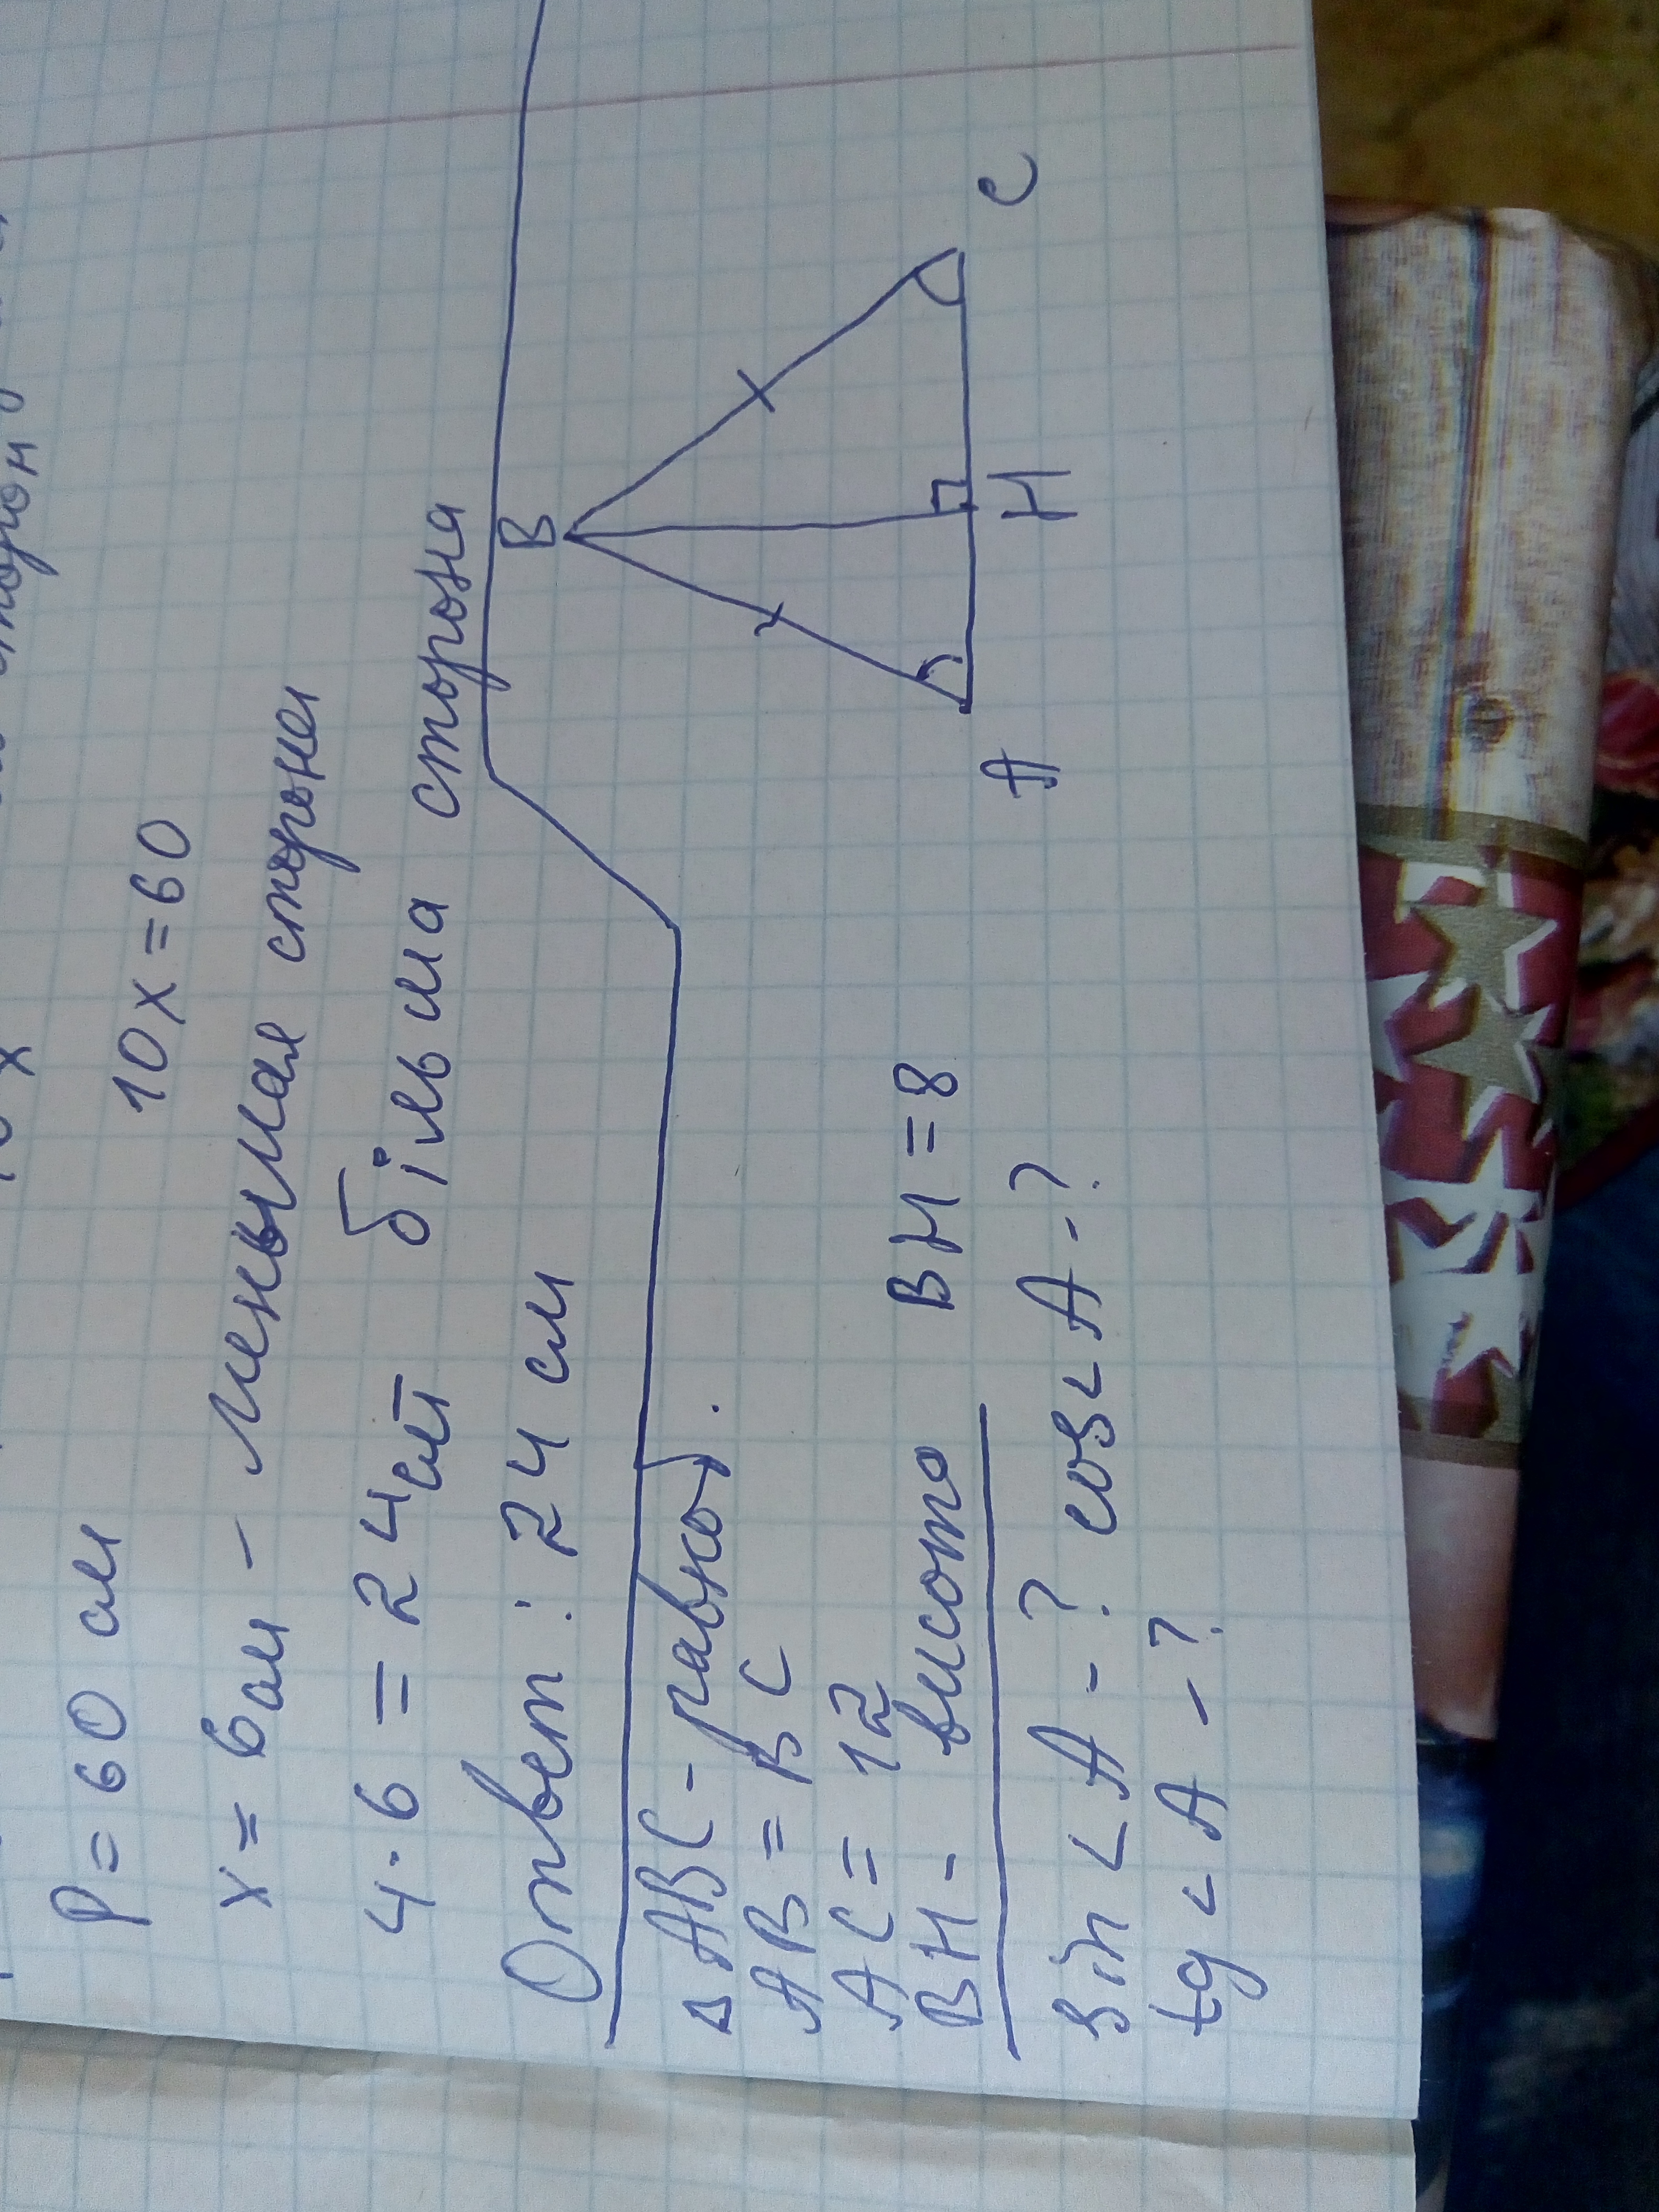 P = 60 см 10x = 60
x = 6 см - меньшая сторона
4 · 6 = 24 см більша сторона
Ответ: 24 см
Δ ABC - равноб.
AB = BC
AC = 12
BH - висота BH = 8
sin < A - ? cos < A - ?
tg < A - ?
B
A
H
C